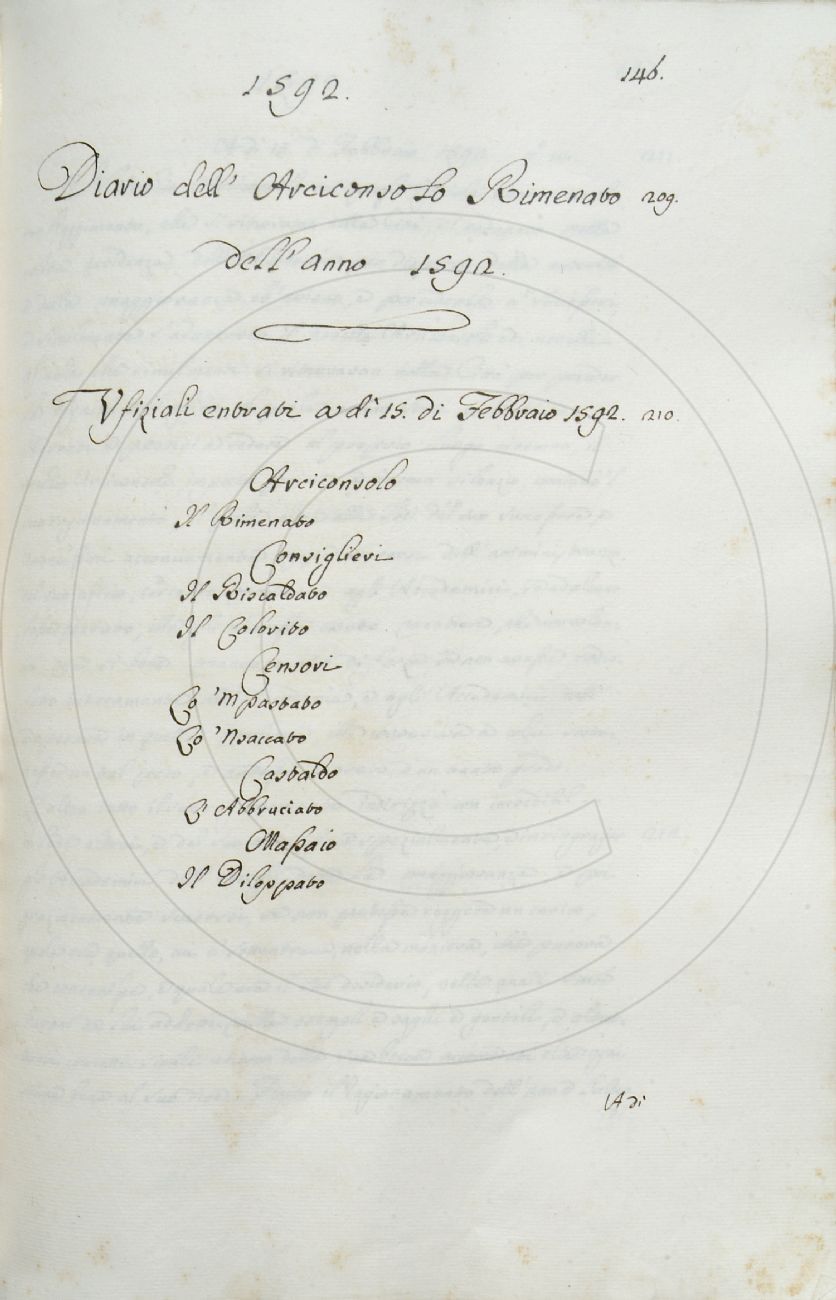 1592.
146.
Diario dell' Arciconsolo Rimenato 209.
dell'anno 1592.
Vfiziali entrati a dì 15. di Febbraio 1592. 210.
Arciconsolo
Il Rimenato
Consiglieri
Il Riscaldato
Il Colorito
Censori
Lo 'Mpastato
Lo 'Nsaccato
Castaldo
L'Abbruciato
Massaio
Il Diloppato
A dì